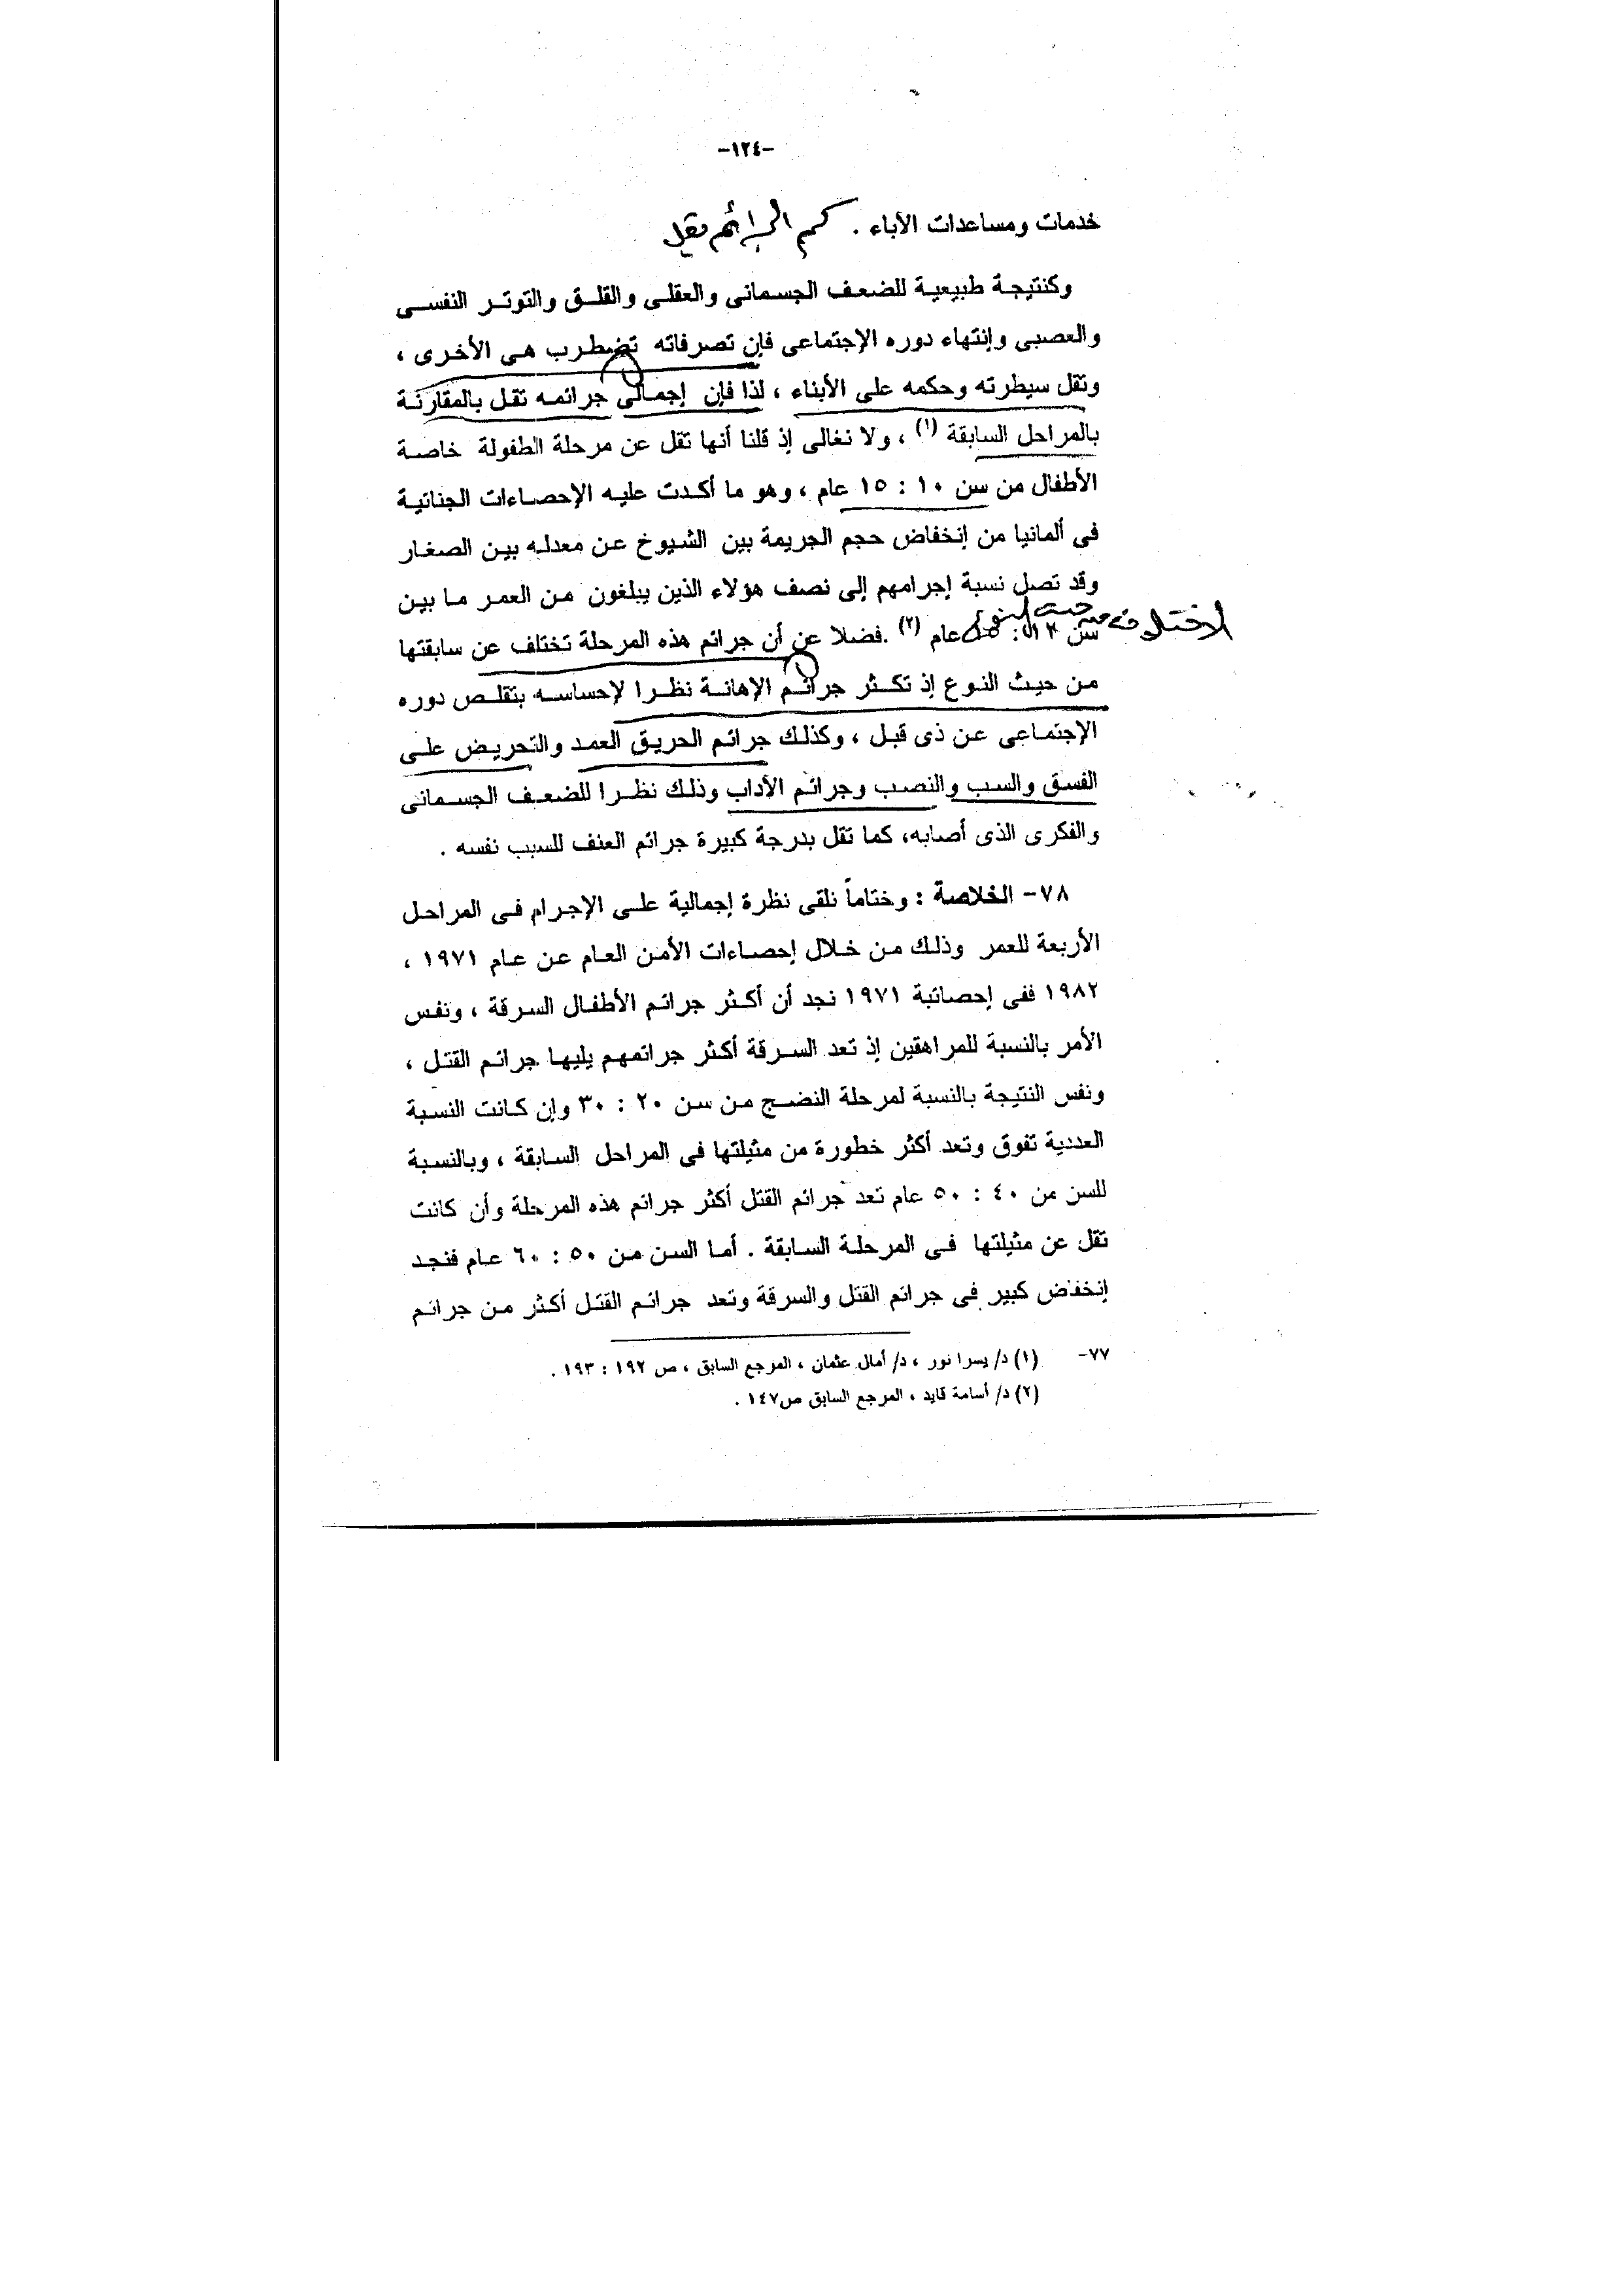 -١٢٤-
خدمات ومساعدات الآباء . كم الجرائم تقل
وكنتيجة طبيعية للضعف الجسمانى والعقلى والقلق والتوتر النفسى
والعصبى وإنتهاء دوره الإجتماعى فإن تصرفاته تضطرب هى الأخرى ،
وتقل سيطرته وحكمه على الأبناء ، لذا فإن إجمالى جرائمه تقل بالمقارنة
بالمراحل السابقة (١) ، ولا نغالى إذ قلنا أنها تقل عن مرحلة الطفولة خاصة
الأطفال من سن ١٠ : ١٥ عام ، وهو ما أكدت عليه الإحصاءات الجنائية
فى ألمانيا من إنخفاض حجم الجريمة بين الشيوخ عن معدله بين الصغار
وقد تصل نسبة إجرامهم إلى نصف هؤلاء الذين يبلغون من العمر ما بين
الاختلاف من حيث النوع
سن : عام (٢) .فضلا عن أن جرائم هذه المرحلة تختلف عن سابقتها
من حيث النوع إذ تكثر جرائم الإهانة نظرا لإحساسه بتقلص دوره
الإجتماعى عن ذى قبل ، وكذلك جرائم الحريق العمد والتحريض على
الفسق والسب والنصب وجرائم الآداب وذلك نظرا للضعف الجسمانى
والفكرى الذى أصابه، كما تقل بدرجة كبيرة جرائم العنف للسبب نفسه .
٧٨- الخلاصة : وختاماً نلقى نظرة إجمالية على الإجرام فى المراحل
الأربعة للعمر وذلك من خلال إحصاءات الأمن العام عن عام ١٩٧١ ،
١٩٨٢ ففى إحصائية ١٩٧١ نجد أن أكثر جرائم الأطفال السرقة ، ونفس
الأمر بالنسبة للمراهقين إذ تعد السرقة أكثر جرائمهم يليها جرائم القتل ،
ونفس النتيجة بالنسبة لمرحلة النضج من سن ٢٠ : ٣٠ وإن كانت النسبة
العددية تفوق وتعد أكثر خطورة من مثيلتها فى المراحل السابقة ، وبالنسبة
للسن من ٤٠ : ٥٠ عام تعد جرائم القتل أكثر جرائم هذه المرحلة وأن كانت
تقل عن مثيلتها فى المرحلة السابقة . أما السن من ٥٠ : ٦٠ عام فنجد
إنخفاض كبير فى جرائم القتل والسرقة وتعد جرائم القتل أكثر من جرائم
٧٧- (١) د/ يسرا نور ، د/ أمال عثمان ، المرجع السابق ، ص ١٩٢ : ١٩٣ .
(٢) د/ أسامة قايد ، المرجع السابق ص١٤٧ .